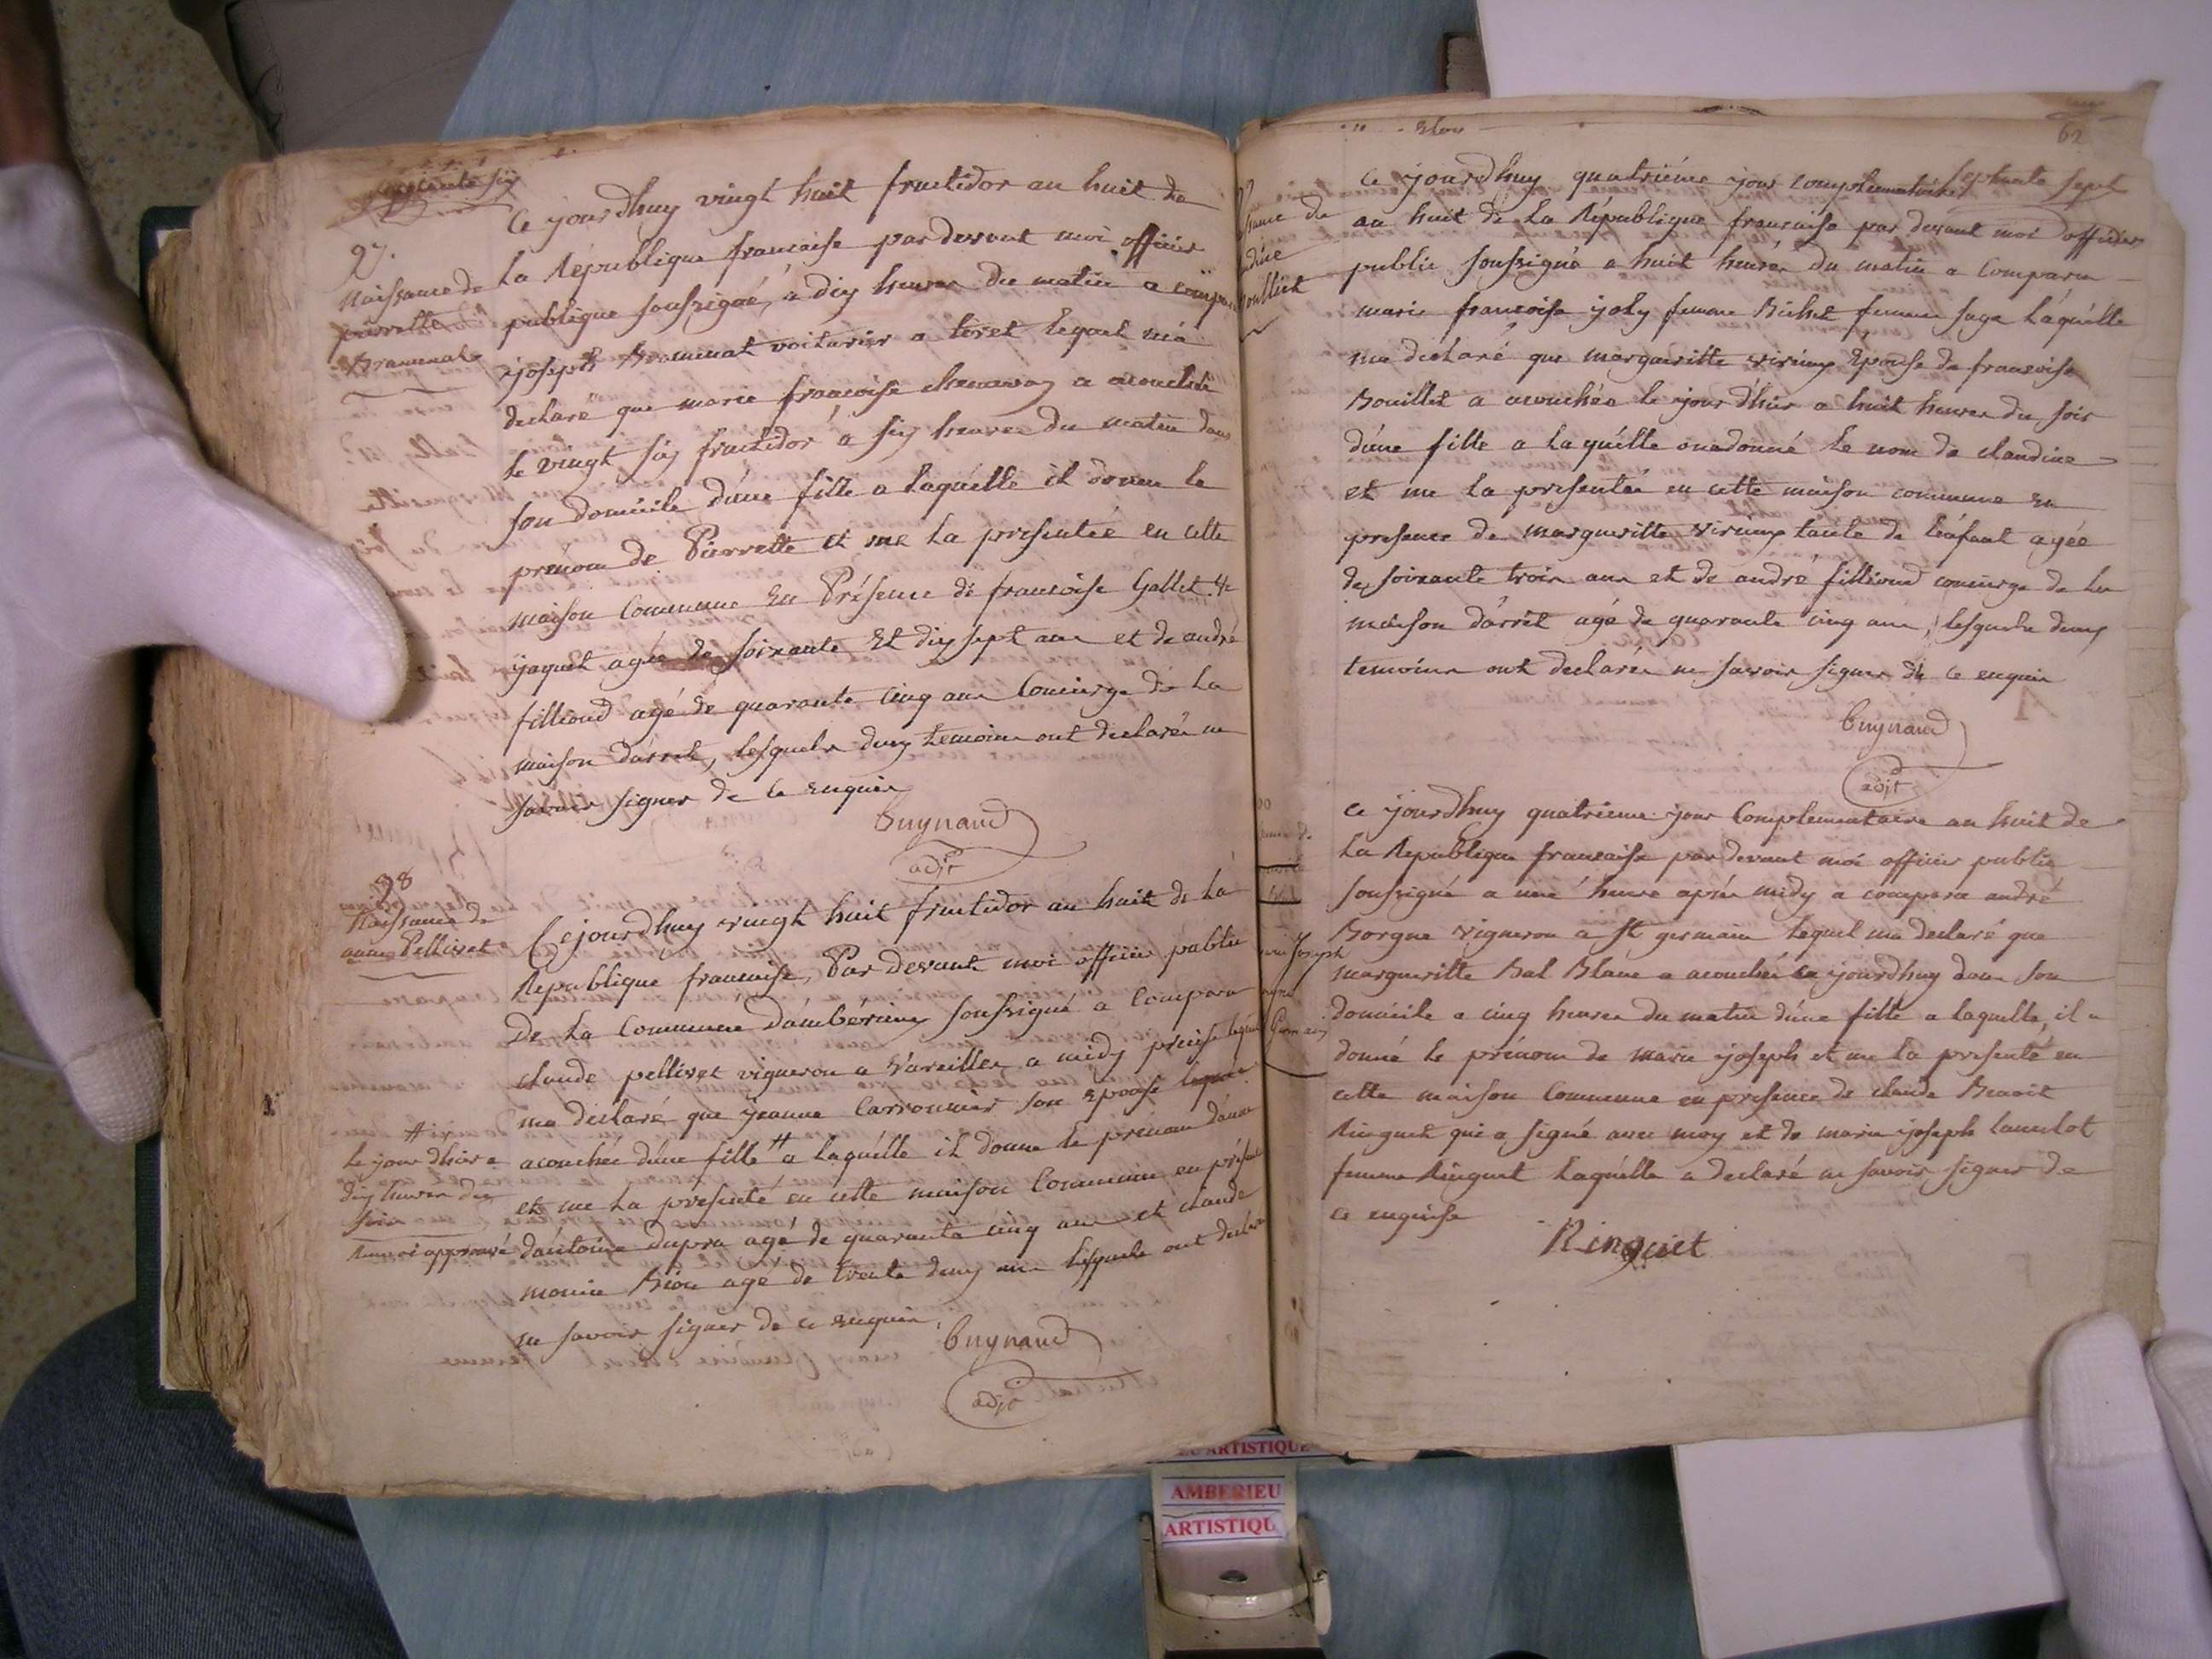 septante six
97.
Naissance de
pierrette
Brammat
Ce jourdhuy vingt huit fructidor an huit de
La République francaise pardevant moi officier
publique soussigné, a dix heures du matin a compau
joseph Brammat voiturier a tiret lequel m'a
declaré que marie francoise chenavaz a acouchée
le vingt six fructidor a six heures du matin dans
son domicile d'une fille a laquélle il donne le
prénom de Pierrette et me la presentée en cette
maison Commune En Présence de francoise Gallet fe
jaquet agée de soixante Et dix sept ans et de andré
fillioud agé de quarante cinq ans Concierge de La
maison d'arret, lesquels deux temoins ont declarés ne
savoir signer de ce Enquis
Guynaud
adjt
98
Naissance de
anne Pellivet
Cejourdhuy vingt huit fructidor an huit de La
République francaise, Par devant moi officier public
De La Commune d'ambérieux soussigné a Comparu
claude pellivet vigneron a Vareilles a midy precise lequel
ma declaré que jeanne Carronnier son Epouse
acouchée d'une fille # a laquélle il donne le prénom d'anne
et me La presenté en cette maison Commune en présence
d'antoine dupra agé de quarante cinq ans et claude
marin Bion agé de trente deux ans lesquels ont declaré
ne savoir signer de ce enquis,
# hier
le jour dhier a
dix heures du
soir
Renvoi approuvé
Guynaud
adjt
62
septante sept
ce jourdhuy quatriéme jour complementaire
an huit de La République francaise par devant moi officier
public soussigné a huit heures du matin a Comparu
marie francoise joly femme Bichet femme sage laquélle
ma déclaré que margueritte virieux Epouse de francoise
Bouillet a acouchée le jour d'hier a huit heures du soir
d'une fille a laquélle ona donné Le nom de claudine
et me la presentée en cette maison commune En
presence de margueritte virieux tante de l'enfant agée
de soixante trois ans et de andré fillioud concierge de la
maison d'arrêt agé de quarante cinq ans, lesquels deux
temoins ont declarés ne savoir signer de ce enquis
Guynaud
adjt
ce jourdhuy quatrieme jour Complementaire an huit de
La Republique francaise par devant moi officier public
soussigné a une heure après midy a comparu andré
Borgne vigneron a St germain lequel ma declaré que
margueritte Bal Blanc a acouchée ce jourdhuy dans son
domicile a cinq heures du matin d'une fille a laquelle, il a
donné le prénom de marie joseph et me la presenté en
cette maison Commune en presence de claude Benoit
Ringuet qui a signé avec moy et de marie joseph lancelot
femme Ringuet laquélle a declaré ne savoir signer de
ce enquise
Ringuet
joseph
AMBERIEU
ARTISTIQU